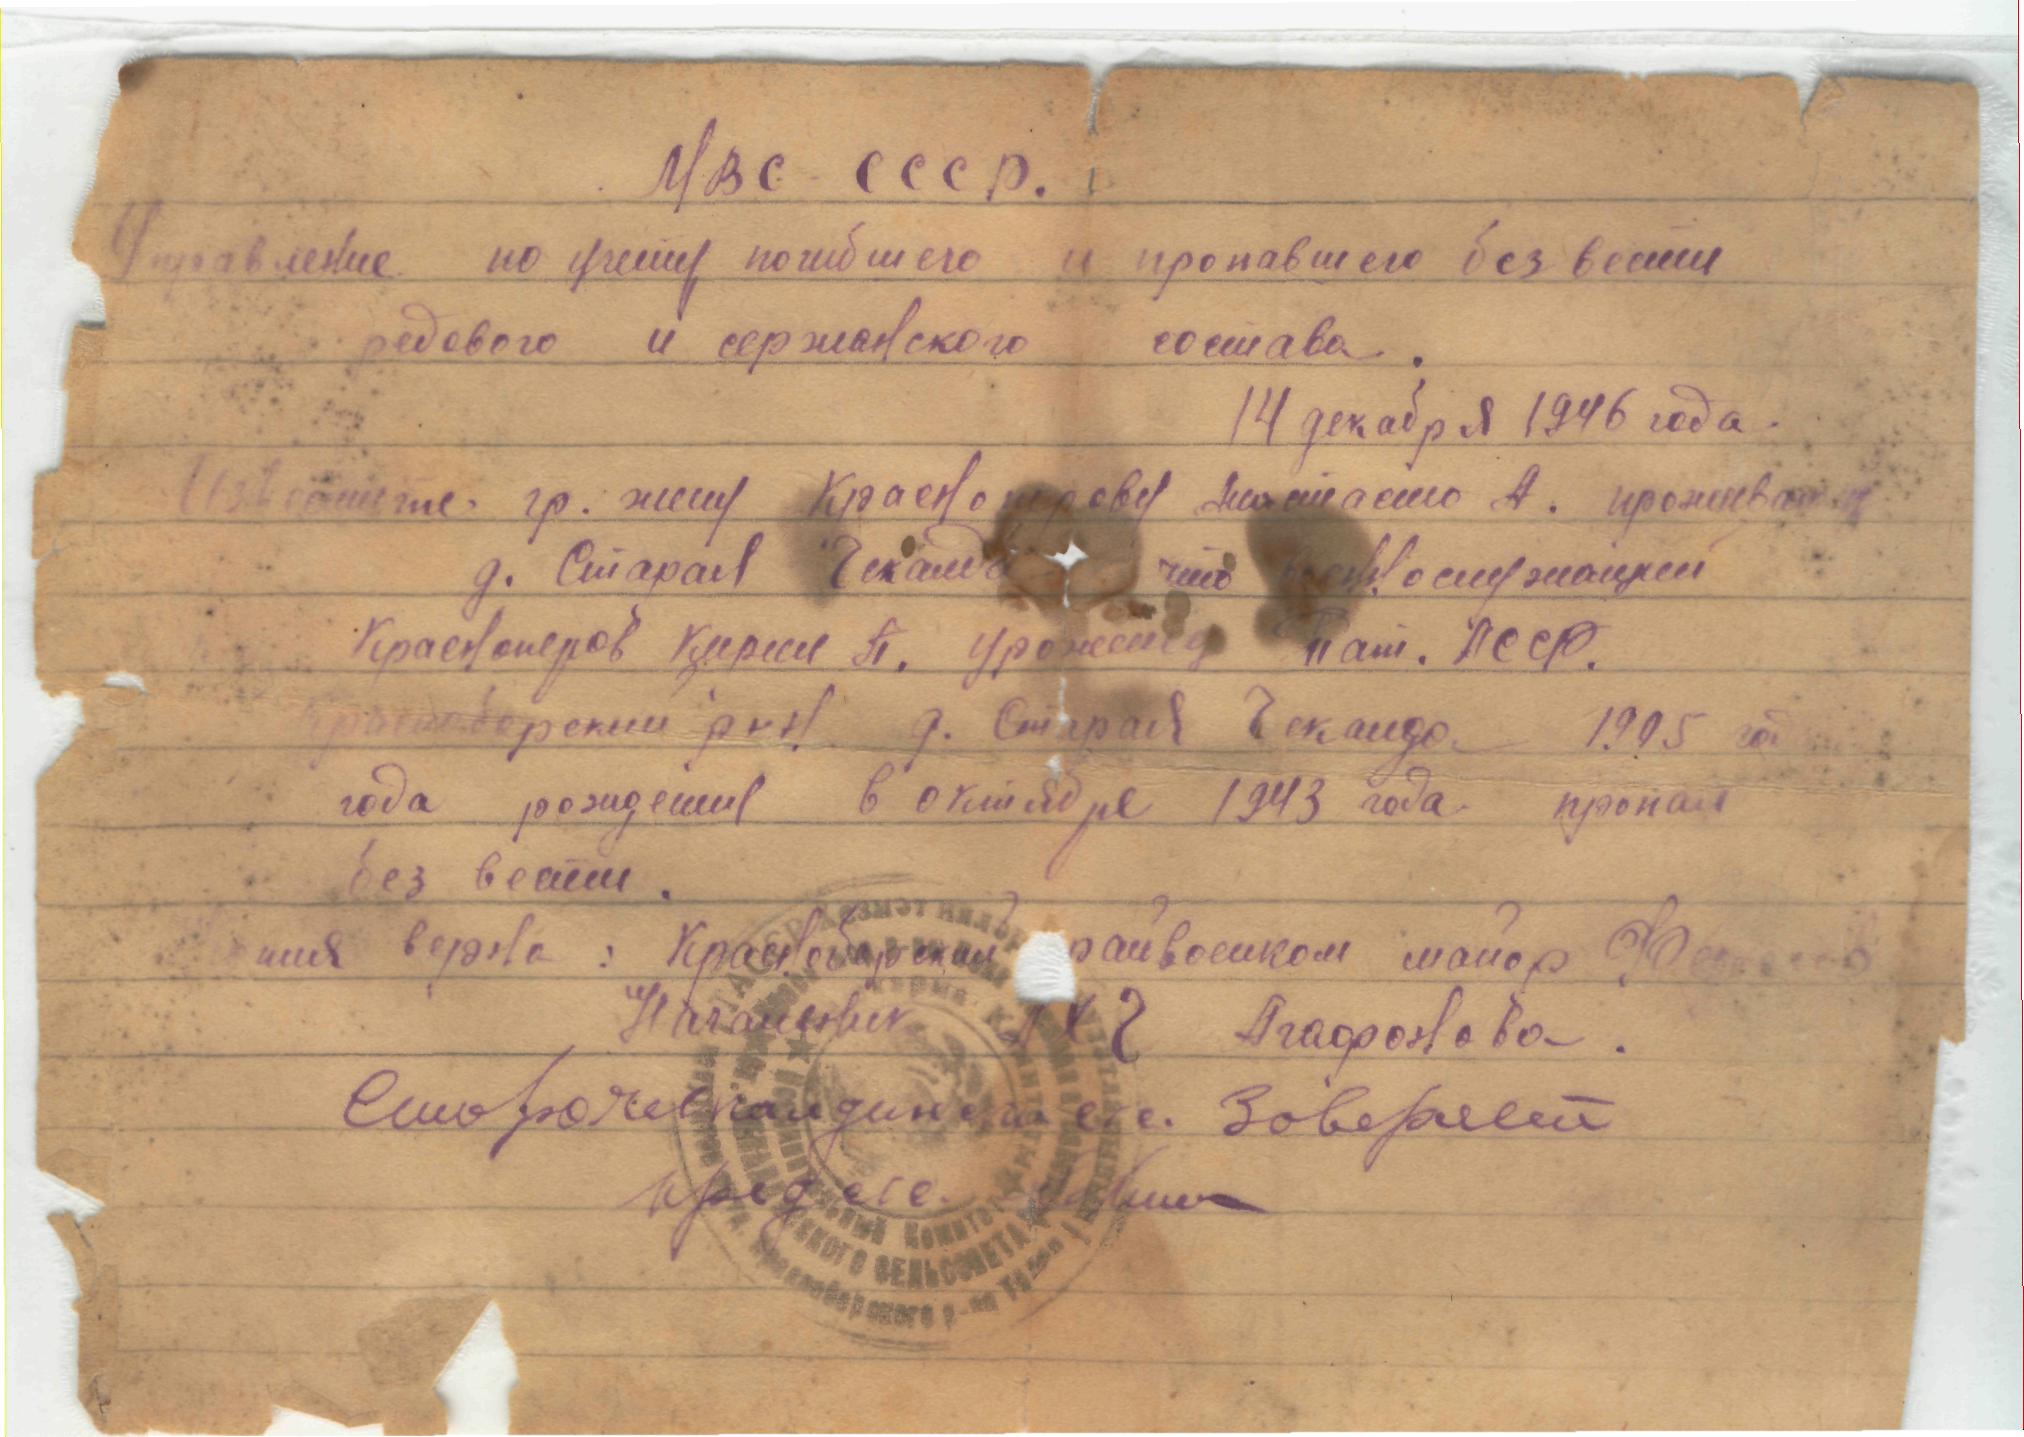 МВС СССР.
Управление по учету погибшего и пропавшего без вести
редового и сержанского состава.
14 декабря 1946 года.
Известите гр. жену Красноперову А.
д. Старая Чеканда что военослужащий
Красноперов Кирил А. уроженец Тат. АССР.
Красноборский р-н д. Старая Чеканда 1905
года рождения в октября 1943 года пропал
без вести.
верна: Красноборский райвоенком майор
Начальник Агафонова.
с. Заверяет
пред с.с.
СЕЛЬСОВЕТА
Красноборского р-на